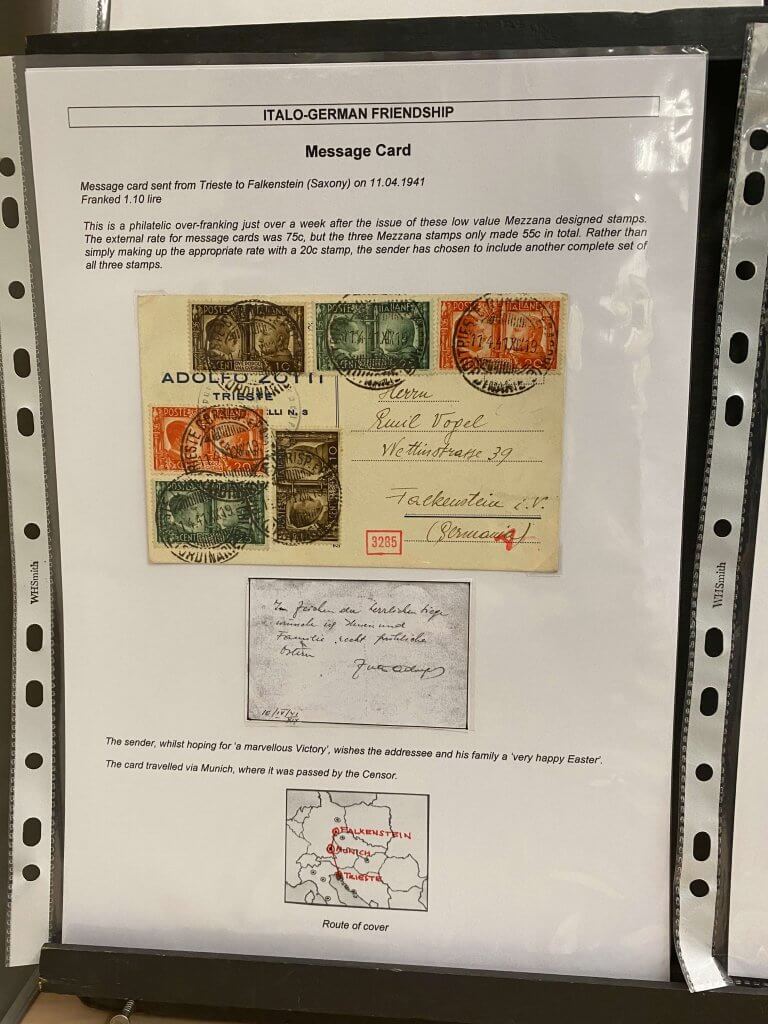 ITALO-GERMAN FRIENDSHIP
Message Card
Message card sent from Trieste to Falkenstein (Saxony) on 11.04.1941
Franked 1.10 lire
This is a philatelic over-franking just over a week after the issue of these low value Mezzana designed stamps.
The external rate for message cards was 75c, but the three Mezzana stamps only made 55c in total. Rather than
simply making up the appropriate rate with a 20c stamp, the sender has chosen to include another complete set of
all three stamps.
POSTE ITALIANE
POSTE ITALIANE
POSTE ITALIANE
ADOLFO ZOTTI
TRIESTE
ELLI N. 3
Herrn
Emil Vogel
Wettinstrasse 39
Falkenstein i. V.
(Germania)
POSTE
3285
Im Zeichen der herrlichen Siege
wünsche ich Ihnen und
Familie recht fröhliche
Ostern
10/IV/41
The sender, whilst hoping for 'a marvellous Victory', wishes the addressee and his family a 'very happy Easter'.
The card travelled via Munich, where it was passed by the Censor.
FALKENSTEIN
MUNICH
TRIESTE
Route of cover
WHSmith
WHSmith